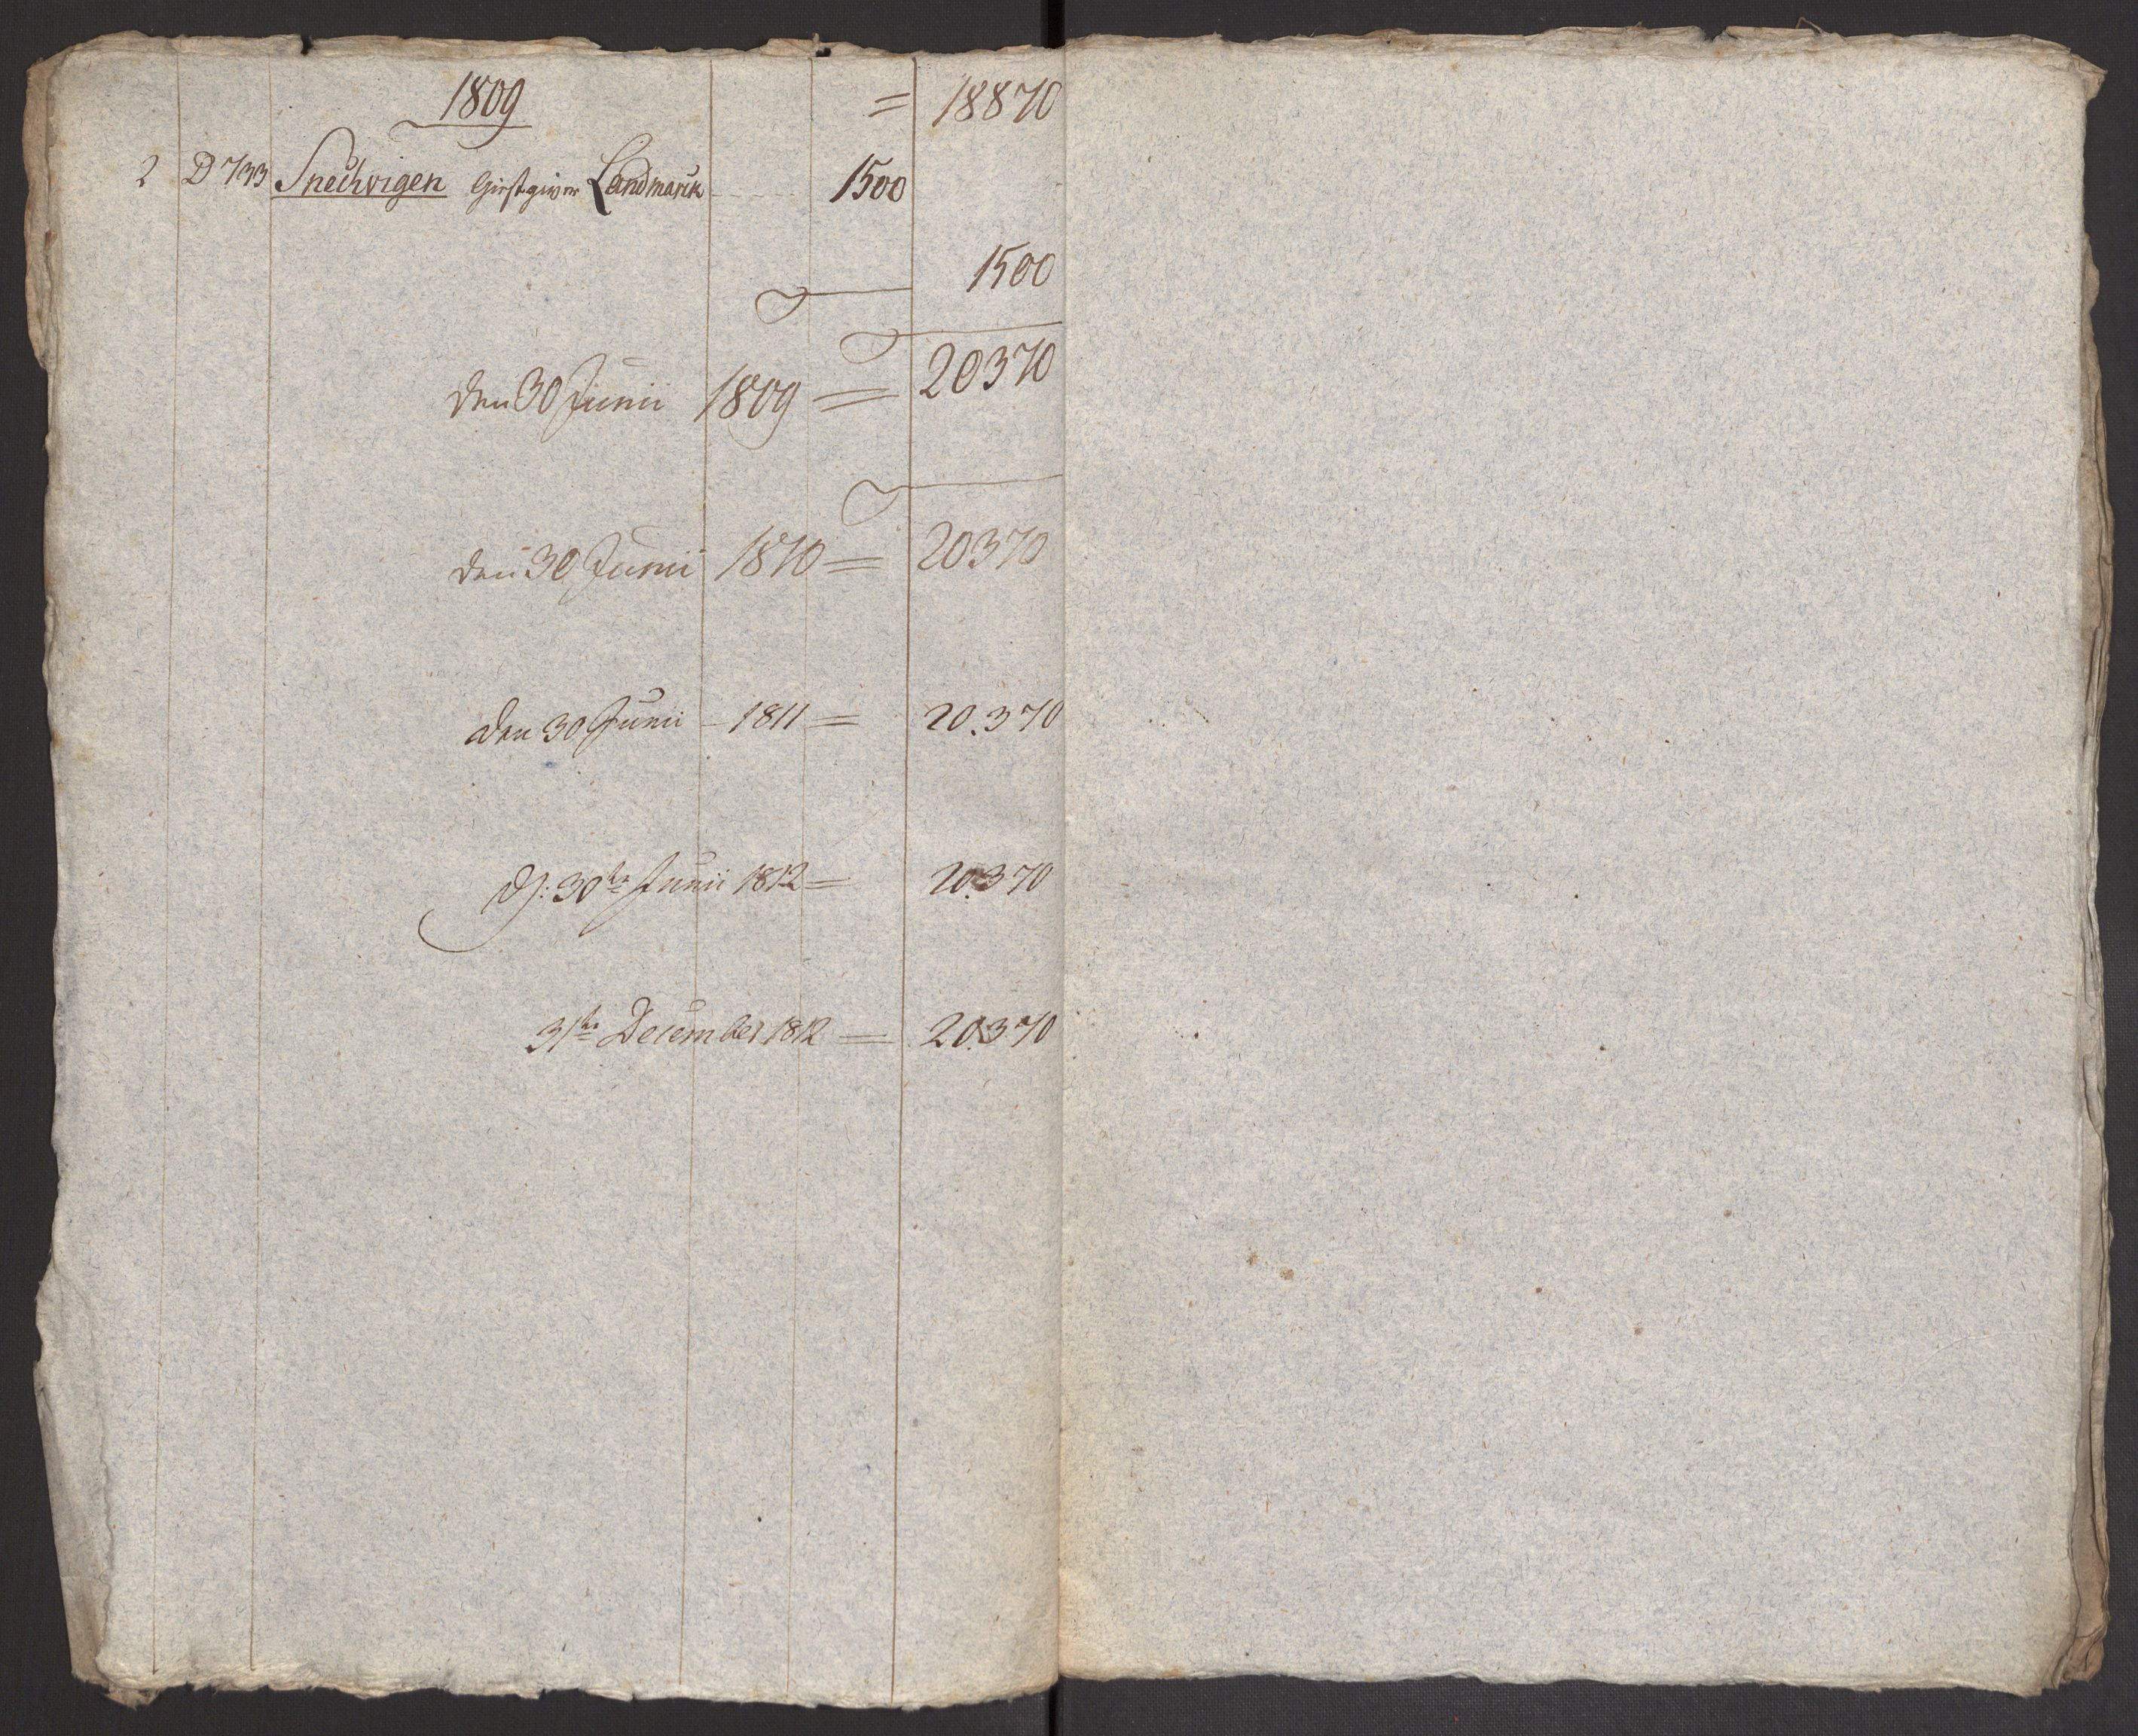 1809 = 18870
2 D 733 Snechvigen Giestgiver Landmarck 1500
1500
20370
den 30 Junii 1809 =
den 30 Junii 1810 = 20370
den 30 Junii - 1811 = 20.370
D: 30te Junii 1812 = 20.370
31te December 1812 = 20370